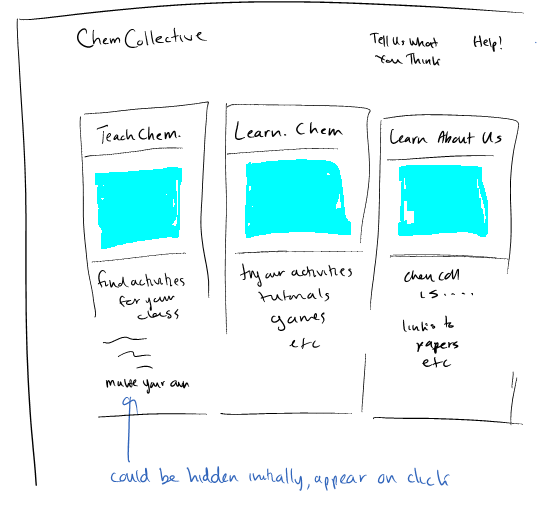 ChemCollective
Tell Us What
You Think
Help!
Teach Chem.
find activities
for your
class
make your own
Learn. Chem
try our activities
tutorials
games
etc
Learn About Us
chem coll
is....
links to
papers
etc
could be hidden initially, appear on click